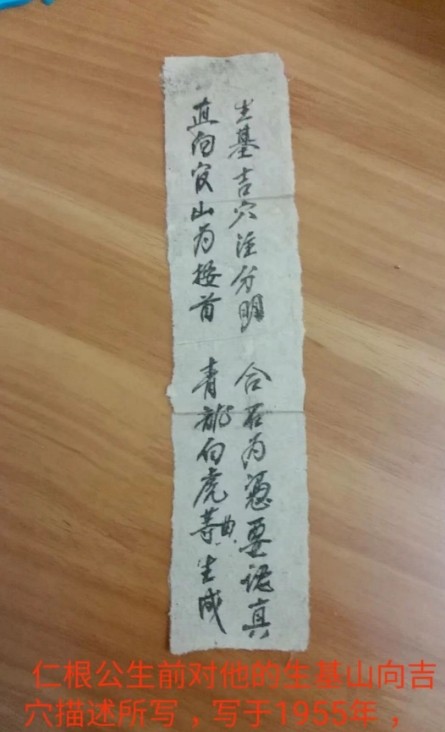 生基吉穴注分明 合石为憑要認真
直向山为首 青龍白虎生成
仁根公生前对他的生基山向吉
穴描述所写，写于1955年，